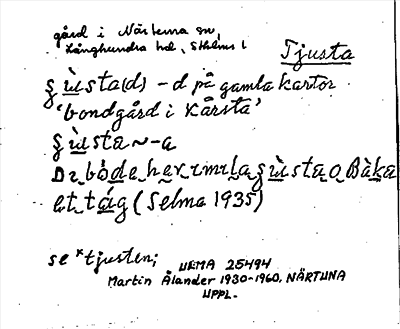 gård i Närtuna sn,
Långhundra hd, Sthlms l
Tjusta
şùsta(d) – d på gamla kartor
'bondgård i Kårsta'
şùsta ~ -a
De bòde her imila şùsta o Bàka
et tåg (Selma 1935)
se *tjusten;
ULMA 25494
Martin Ålander 1930-1960, NÄRTUNA
UPPL.